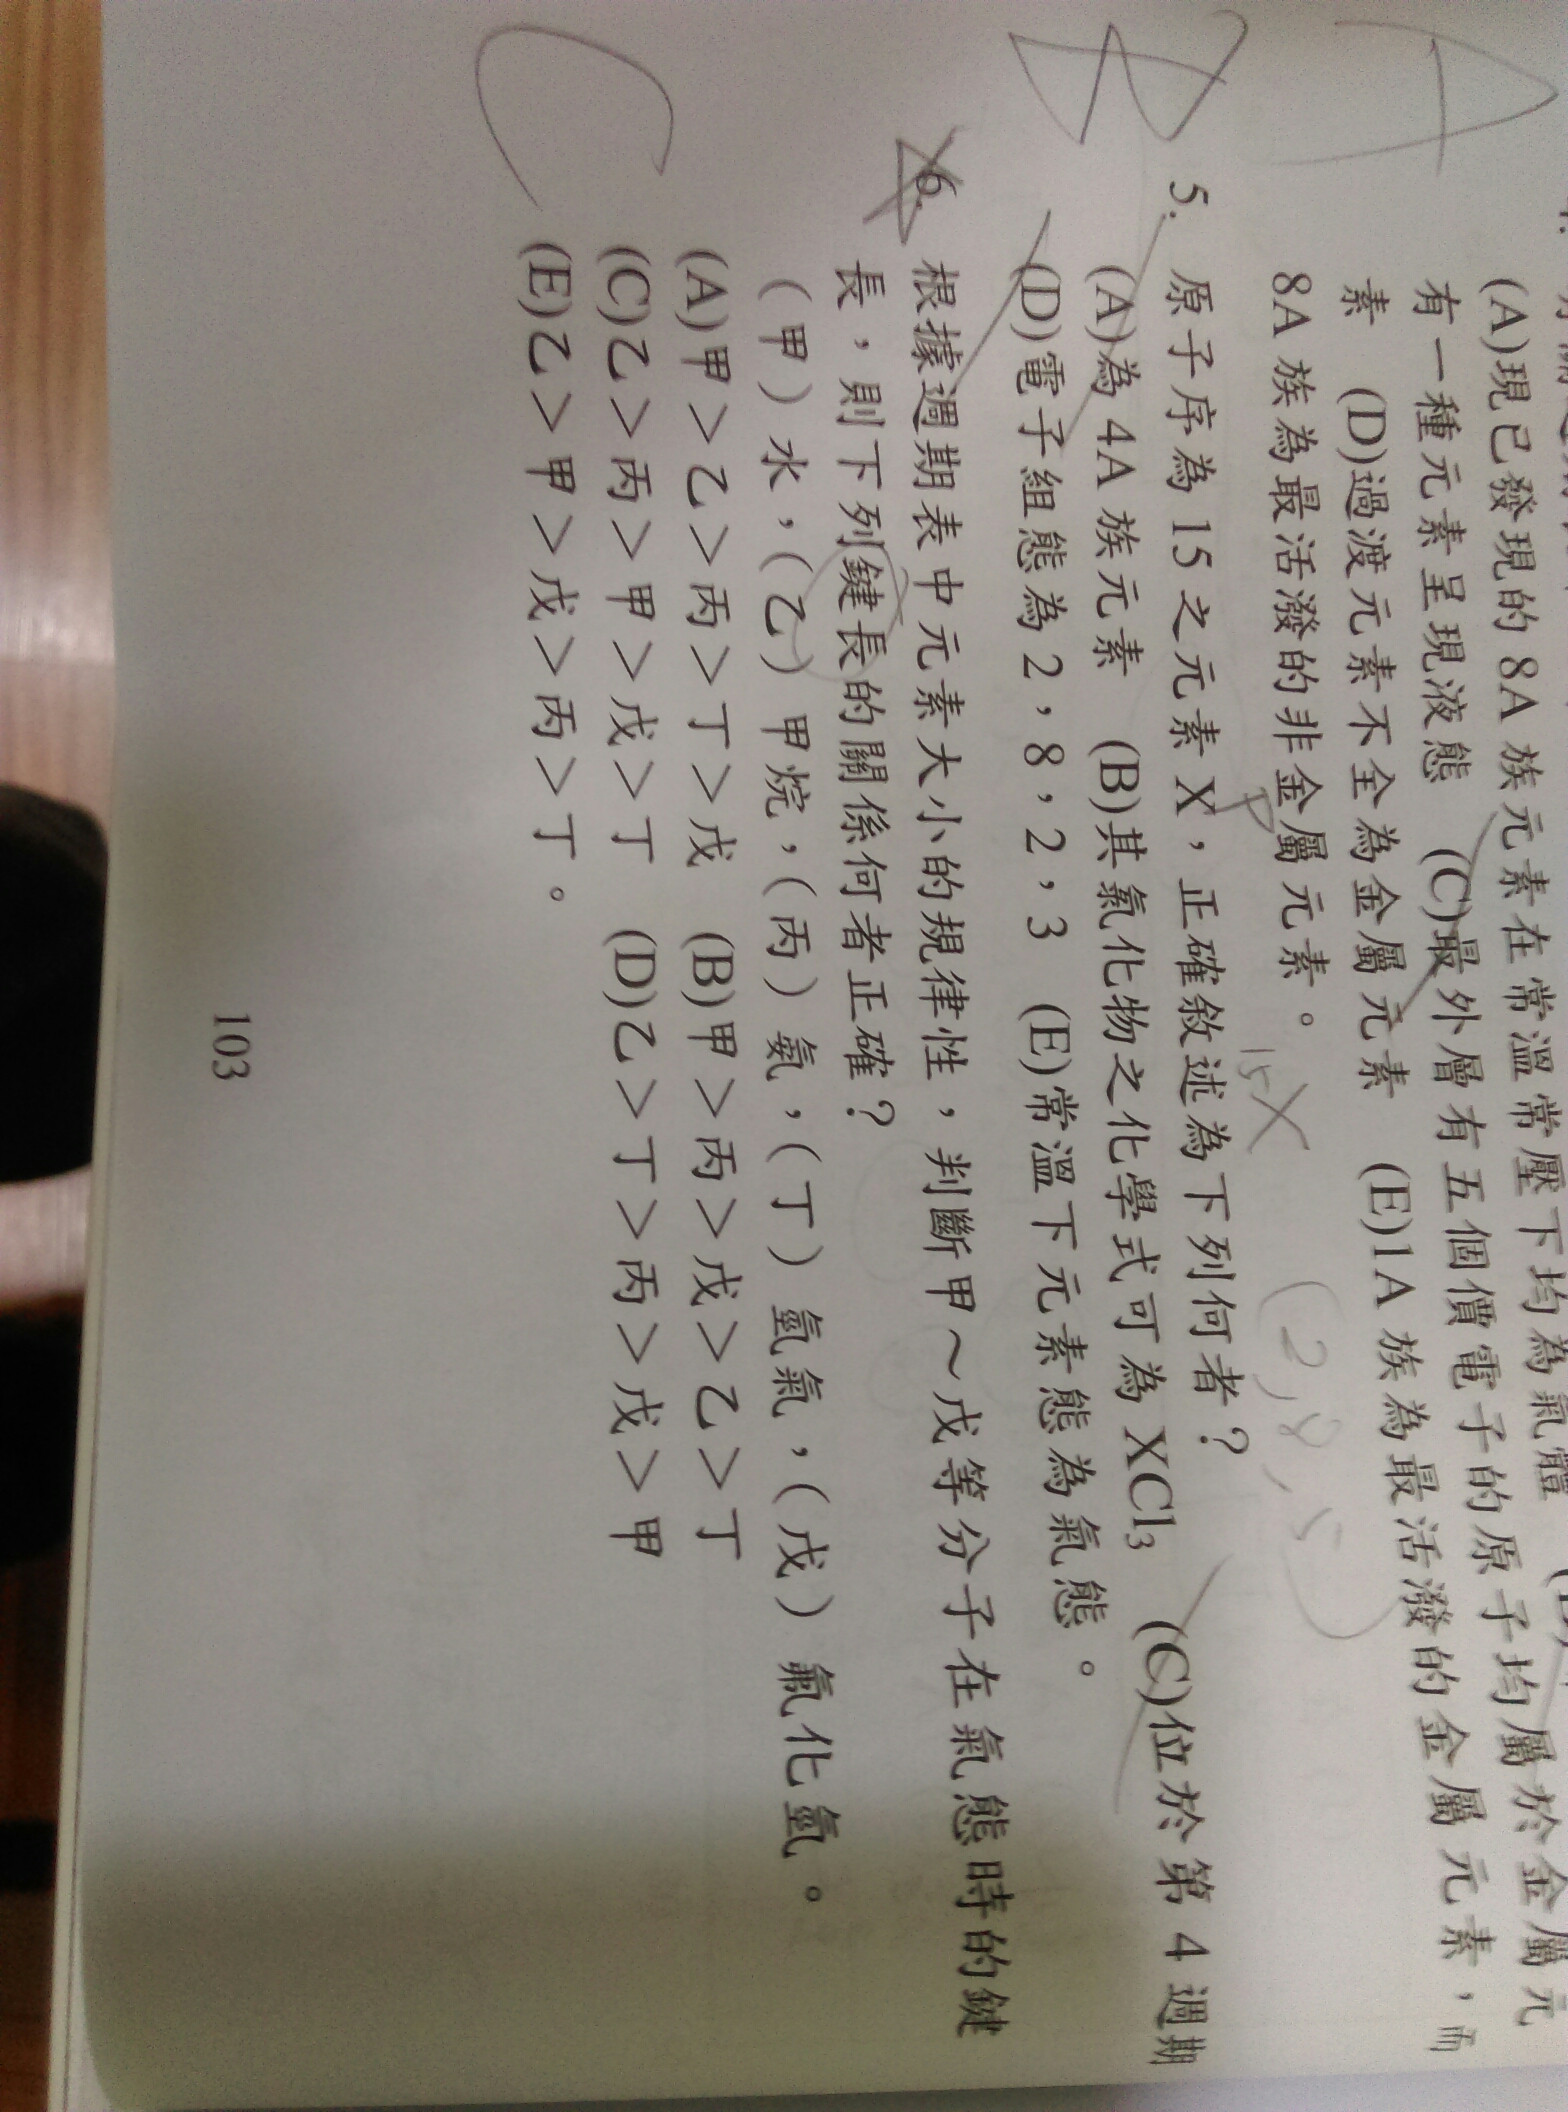 (A)現已發現的 8A 族元素在常溫常壓下均為氣體
有一種元素呈現液態 (C)最外層有五個價電子的原子均屬於金屬元
素 (D)過渡元素不全為金屬元素 (E)1A 族為最活潑的金屬元素，而
8A 族為最活潑的非金屬元素。
15X (2,8,5)
5. 原子序為 15 之元素 X，正確敘述為下列何者？
P
(A)為 4A 族元素 (B)其氯化物之化學式可為 XCl₃ (C)位於第 4 週期
(D)電子組態為 2，8，2，3 (E)常溫下元素態為氣態。
6. 根據週期表中元素大小的規律性，判斷甲～戊等分子在氣態時的鍵
長，則下列鍵長的關係何者正確？
（甲）水，（乙）甲烷，（丙）氨，（丁）氫氣，（戊）氟化氫。
(A)甲＞乙＞丙＞丁＞戊 (B)甲＞丙＞戊＞乙＞丁
(C)乙＞丙＞甲＞戊＞丁 (D)乙＞丁＞丙＞戊＞甲
(E)乙＞甲＞戊＞丙＞丁。
C
103